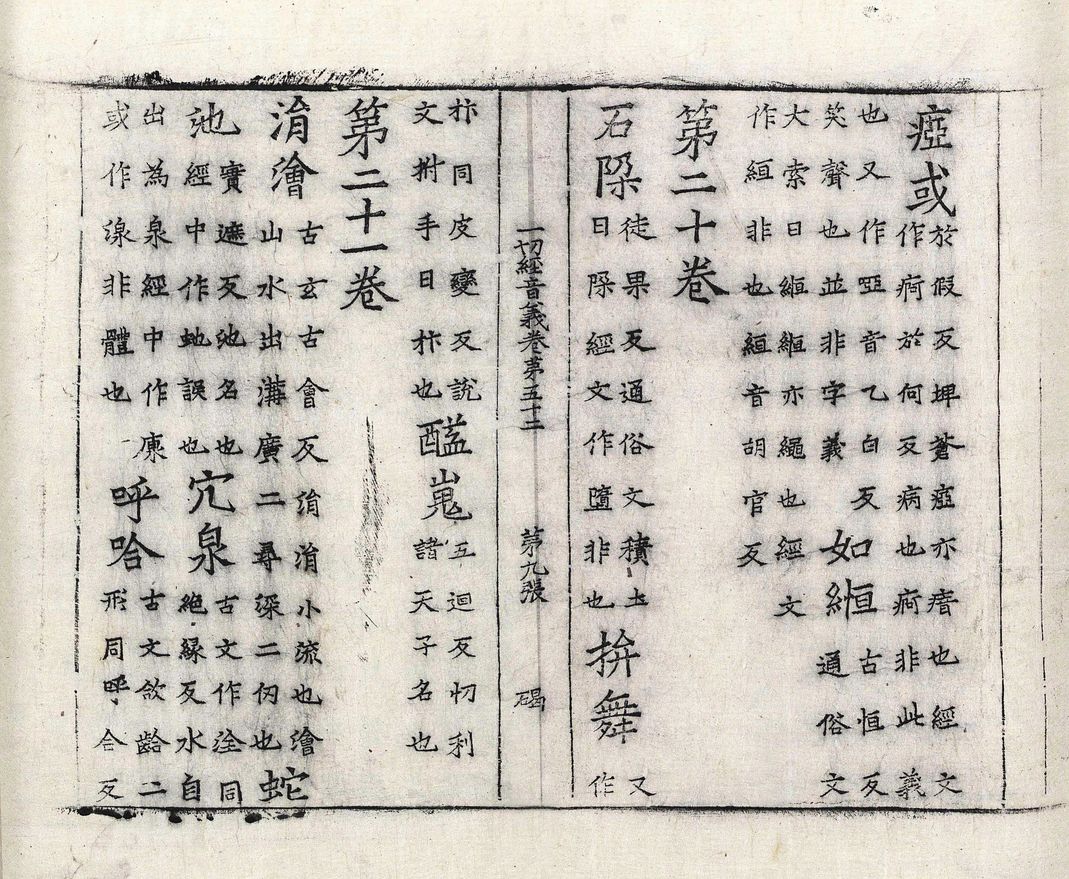 瘂或於假反埤蒼瘂亦瘖也經文作痾於何反病也痾非此義
也又作啞音乙白反笑聲也並非字義如縆古恒反通俗文
大索曰縆縆亦繩也經文作絙非也絙音胡官反
第二十卷
石𨹃徒果反通俗文積土曰𨹃經文作墮非也拚舞又作
一切經音義卷第五十二 第九張 碣
抃同皮變反說文拊手曰抃也醯嵬五迴反忉利諸天子名也
第二十一卷
涓澮古玄古會反涓涓小流也澮山水出溝廣二尋深二仞也蛇
池實遮反池名也經中作虵誤也穴泉古文作洤同絶緣反水自
出為泉經中作或作湶非體也呼哈古文欱二形同呼合反